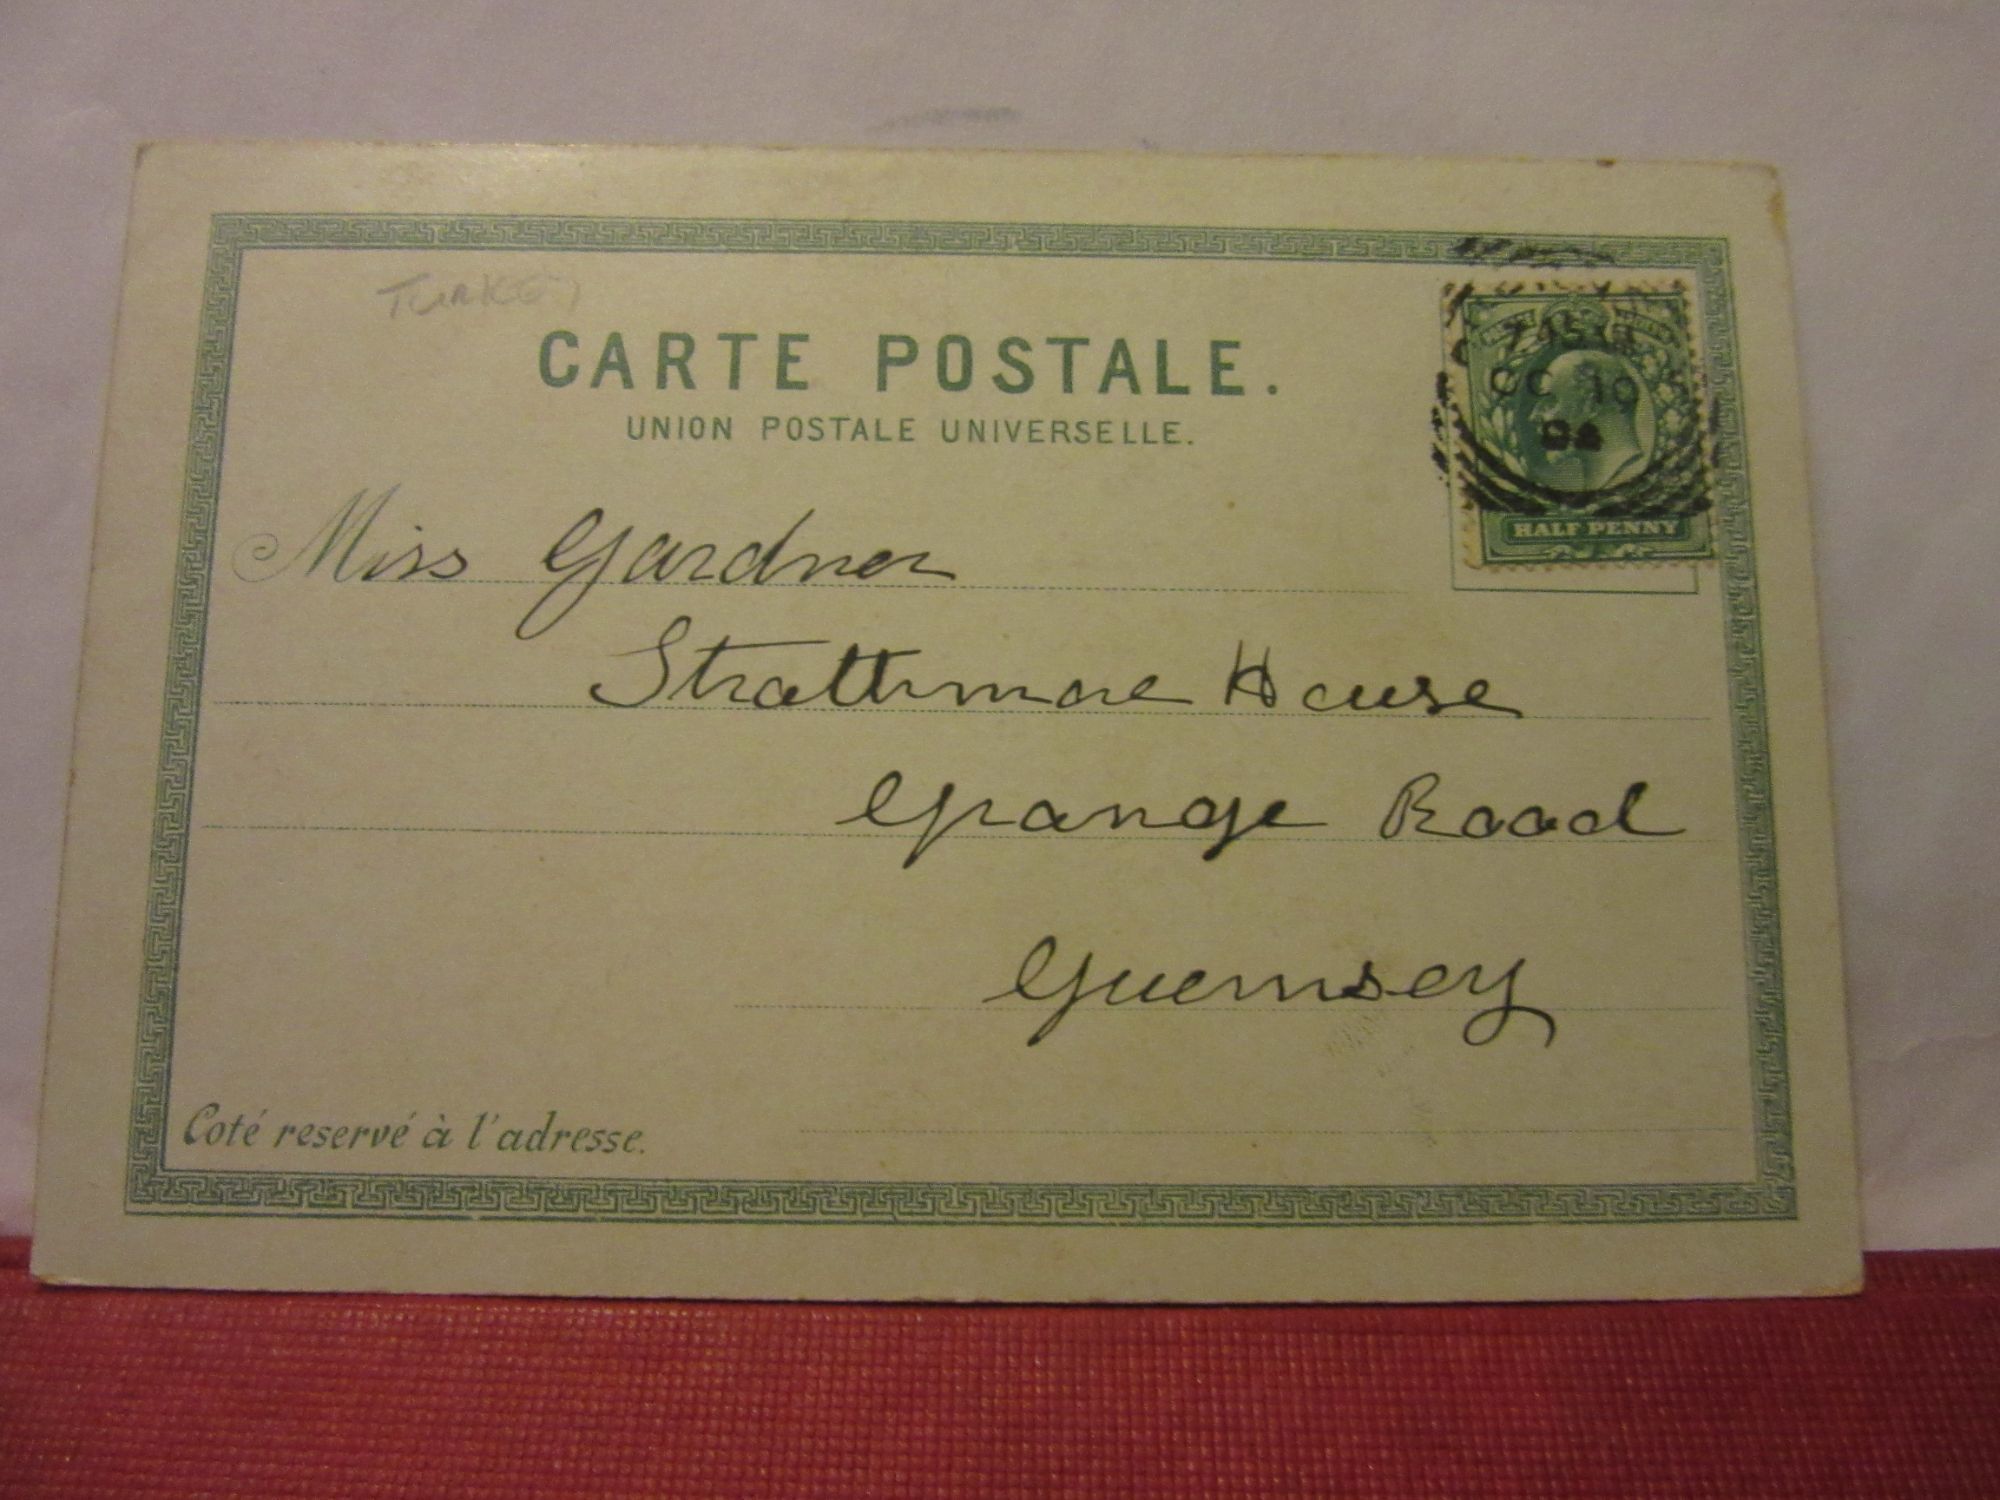 TURKEY
CARTE POSTALE.
UNION POSTALE UNIVERSELLE.
OC 10
HALF PENNY
Miss Gardner
Strathmore House
Grange Road
Guernsey
Coté reservé à l'adresse.